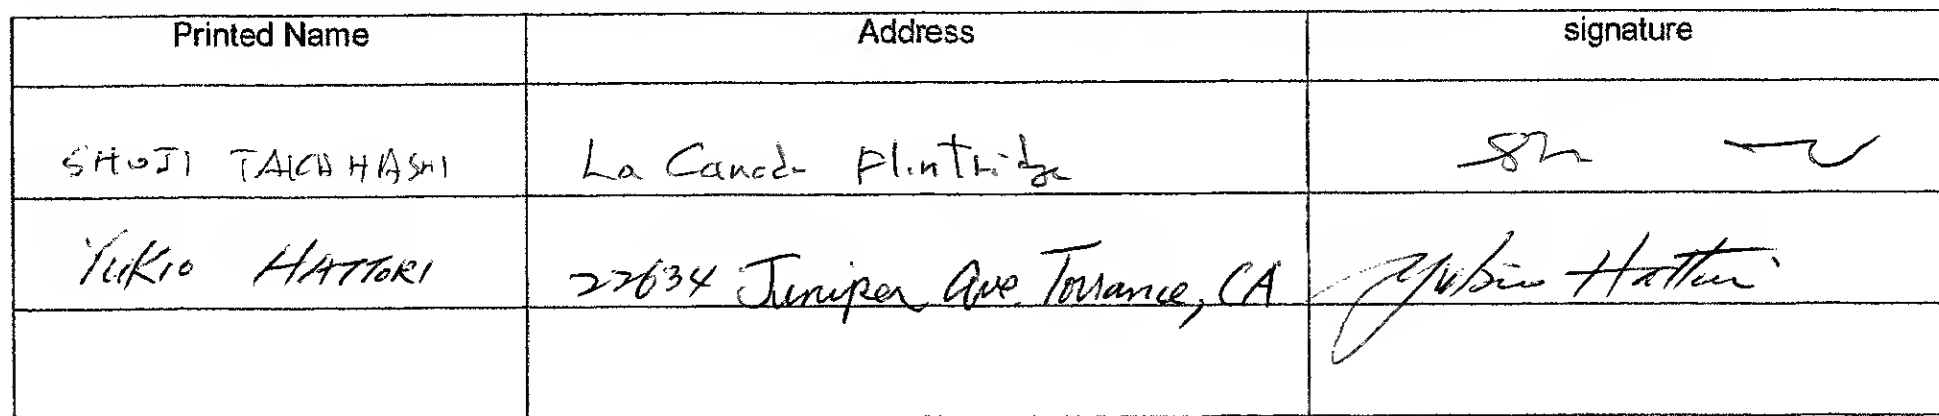 Printed Name Address signature
SHOJI TAKAHASHI La Canada Flintridge
YUKIO HATTORI 22634 Juniper Ave. Torrance, CA Yukio Hattori